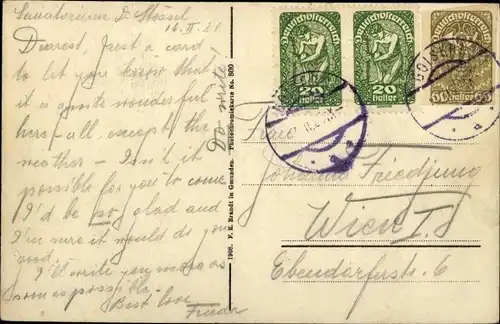 Sanatorium Dr. Stössel
16. II. 21
Dearest, just a card
to let you know that
it is quite wonderful
here - all except the
weather - Isn't it
possible for you to come
I'd be so glad and
I'm sure it would do you
good.
I'll write you more as
soon as possible.
Best love
Frieda
Do write!
1908. F. E. Brandt in Gmunden. Postochromiekarte No. 800
Deutschösterreich
20
Heller
Deutschösterreich
20
Heller
Deutschösterreich
60 Heller 60
Frau
Johanna Friedjung
Wien I.
Ebendorferstr. 6